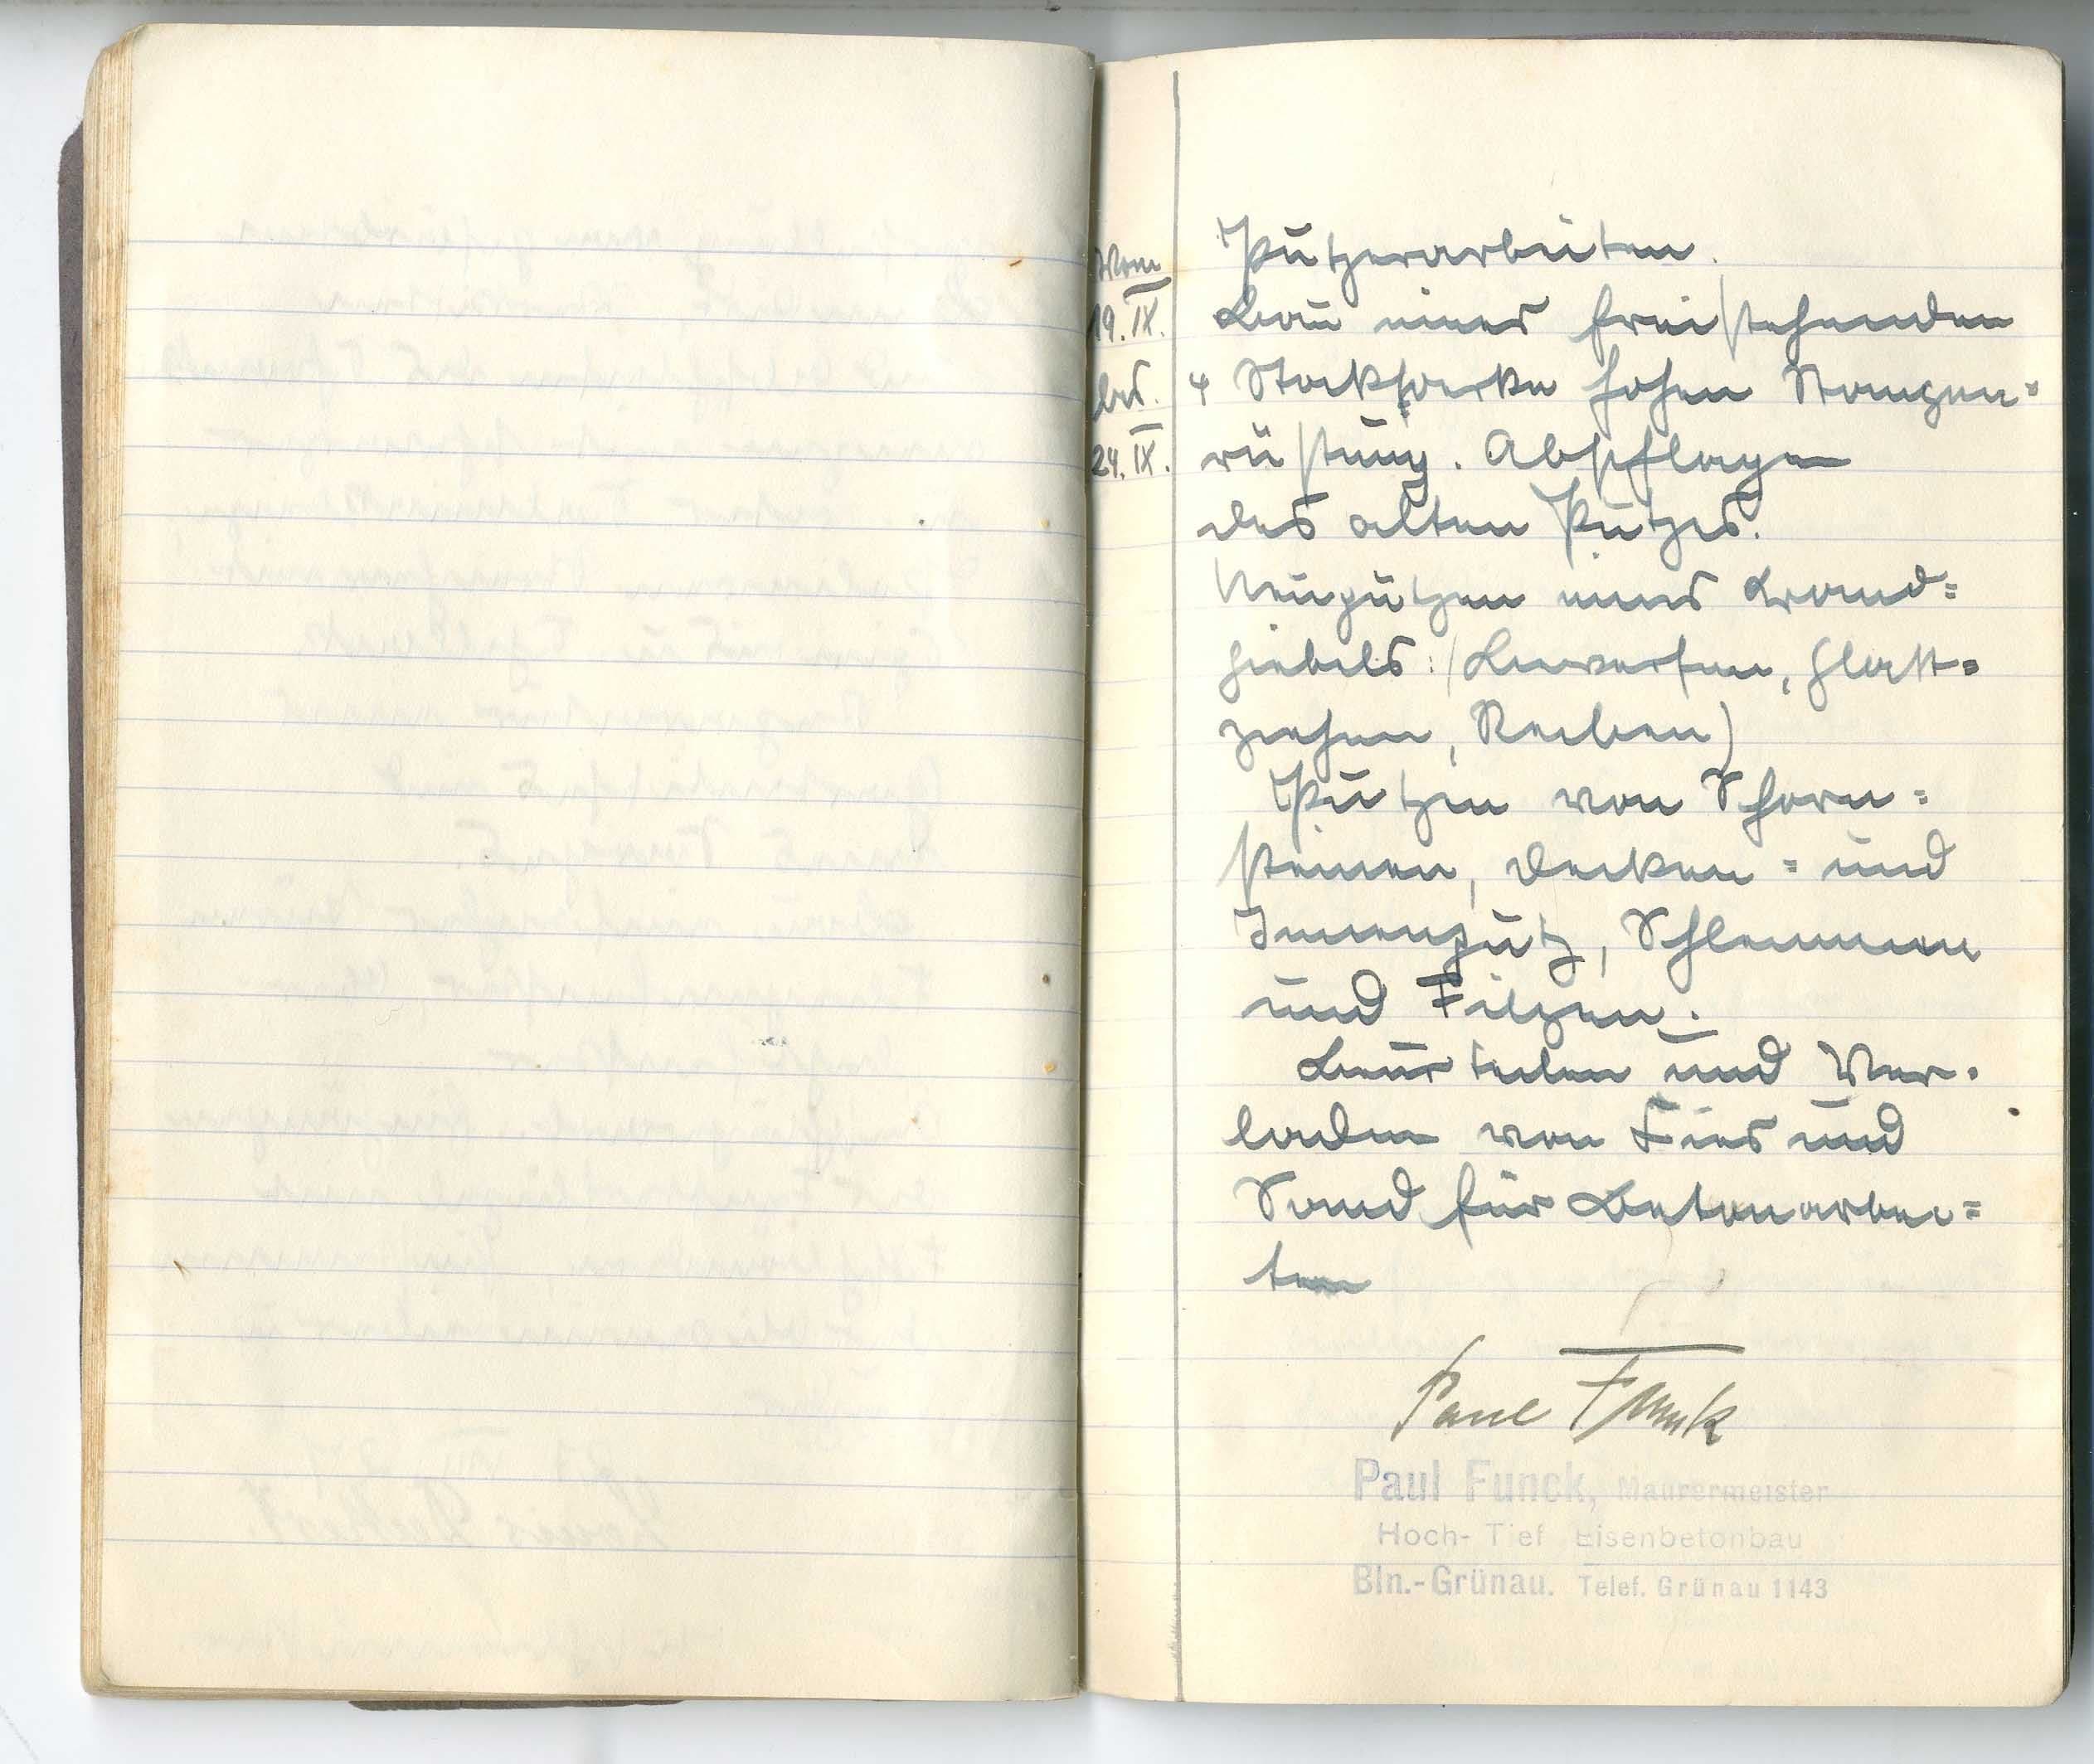 Vom
19. IX.
bis.
24. IX.
Putzerarbeiten.
Bau eines freistehenden
4 Stockwerke hohen Stangen=
rüstung. Abschlagen
des alten Putzes.
Neuputzen eines Brand=
giebels: (Bewerfen, Glatt=
ziehen, Reiben)
Putzen von Schorn=
steinen, Decken= und
Innenputz, Schlemmen
und Filzen.
Beurteilen und Ver=
laden von Kies und
Sand für Betonarbei=
ten
Paul Funck
Paul Funck, Maurermeister
Hoch- Tief Eisenbetonbau
Bln.-Grünau. Telef. Grünau 1143